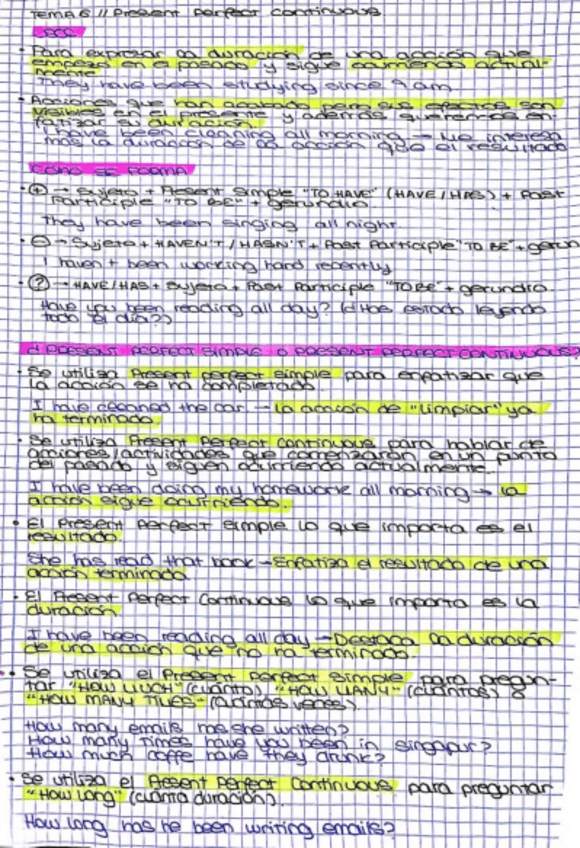 TEMA 6 // Present Perfect Continuous
USO
· Para expresar la duración de una acción que
empezó en el pasado y sigue ocurriendo actual-
mente
They have been studying since 9 am
· Acciones que han acabado pero sus efectos son
visibles en el presente y además queremos en-
fatizar la duración.
I have been cleaning all morning → Me interesa
más la duración de la acción que el resultado
CÓMO SE FORMA
· (+) → Sujeto + Present Simple "TO HAVE" (HAVE/HAS) + Past
Participle "TO BE" + gerundio.
They have been singing all night.
· (-) → Sujeto + HAVEN'T / HASN'T + Past Participle "TO BE" + gerun
I haven't been working hard recently
· (?) → HAVE/HAS + Sujeto + Past Participle "TO BE" + gerundio.
Have you been reading all day? (¿Has estado leyendo
todo el día?)
¿PRESENT PERFECT SIMPLE O PRESENT PERFECT CONTINUOUS?
· Se utiliza Present perfect simple para enfatizar que
la acción se ha completado.
I have cleaned the car → la acción de "limpiar" ya
ha terminado
· Se utiliza Present Perfect Continuous para hablar de
acciones/actividades que comenzaron en un punto
del pasado y siguen ocurriendo actualmente.
I have been doing my homework all morning → la
acción sigue ocurriendo.
· El Present Perfect simple lo que importa es el
resultado.
She has read that book → Enfatiza el resultado de una
acción terminada
· El Present Perfect Continuous lo que importa es la
duración
I have been reading all day → Destaca la duración
de una acción que no ha terminado.
· Se utiliza el Present Perfect Simple para pregun-
tar "HOW MUCH" (cuánto), "HOW MANY" (cuántos) o
"HOW MANY TIMES" (cuántas veces)
How many emails has she written?
How many times have you been in Singapur?
How much coffe have they drunk?
· Se utiliza el Present Perfect Continuous para preguntar
"How long" (cuánta duración).
How long has he been writing emails?